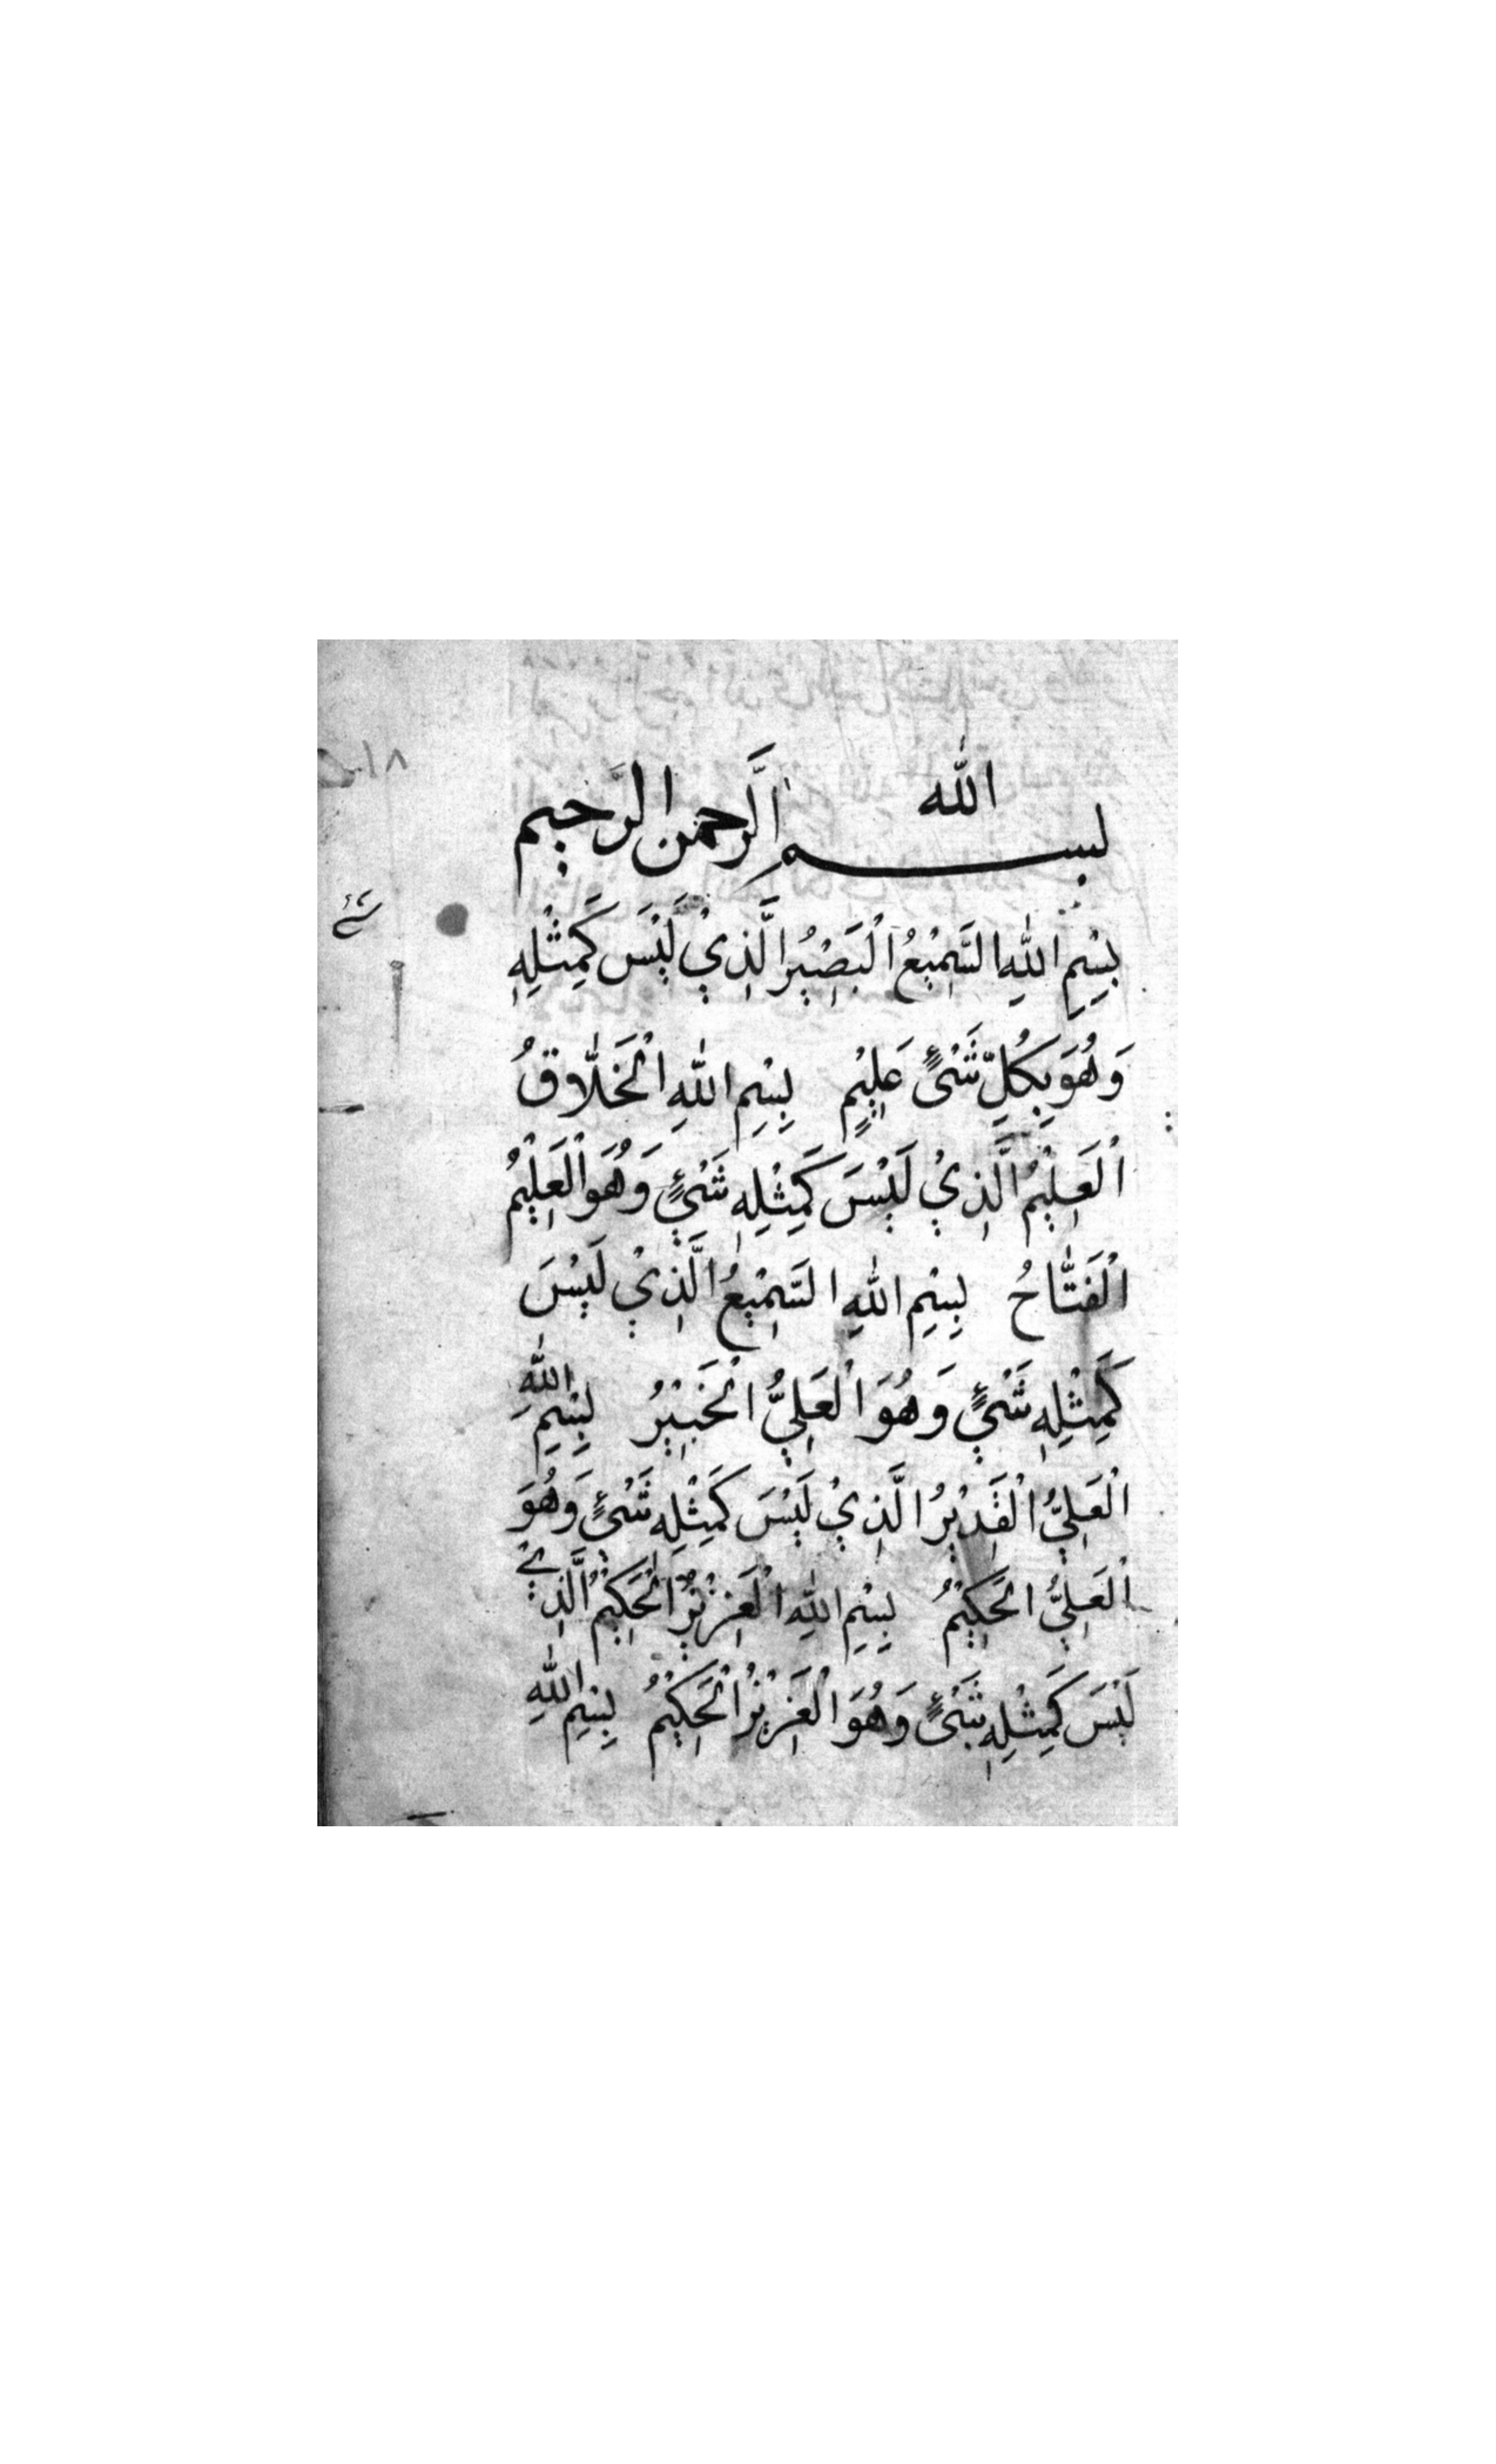 بسم الله الرحمن الرحيم
بِسْمِ اللهِ السَّمِيْعُ الْبَصِيْرُ الَّذِيْ لَيْسَ كَمِثْلِهِ
شئ
وَهُوَ بِكُلِّ شَيْئٍ عَلِيْمٍ بِسْمِ اللهِ الْخَلَّاقُ
الْعَلِيْمُ الَّذِيْ لَيْسَ كَمِثْلِهِ شَيْئٍ وَهُوَ الْعَلِيْمُ
الْفَتَّاحُ بِسْمِ اللهِ السَّمِيْعُ الَّذِيْ لَيْسَ
كَمِثْلِهِ شَيْئٍ وَهُوَ الْعَلِيُّ الْخَبِيْرُ بِسْمِ اللهِ
الْعَلِيُّ الْقَدِيْرُ الَّذِيْ لَيْسَ كَمِثْلِهِ شَيْئٍ وَهُوَ
الْعَلِيُّ الْحَكِيْمُ بِسْمِ اللهِ الْعَزِيْزُ الْحَكِيْمُ الَّذِيْ
لَيْسَ كَمِثْلِهِ شَيْئٍ وَهُوَ الْعَزِيْزُ الْحَكِيْمُ بِسْمِ اللهِ